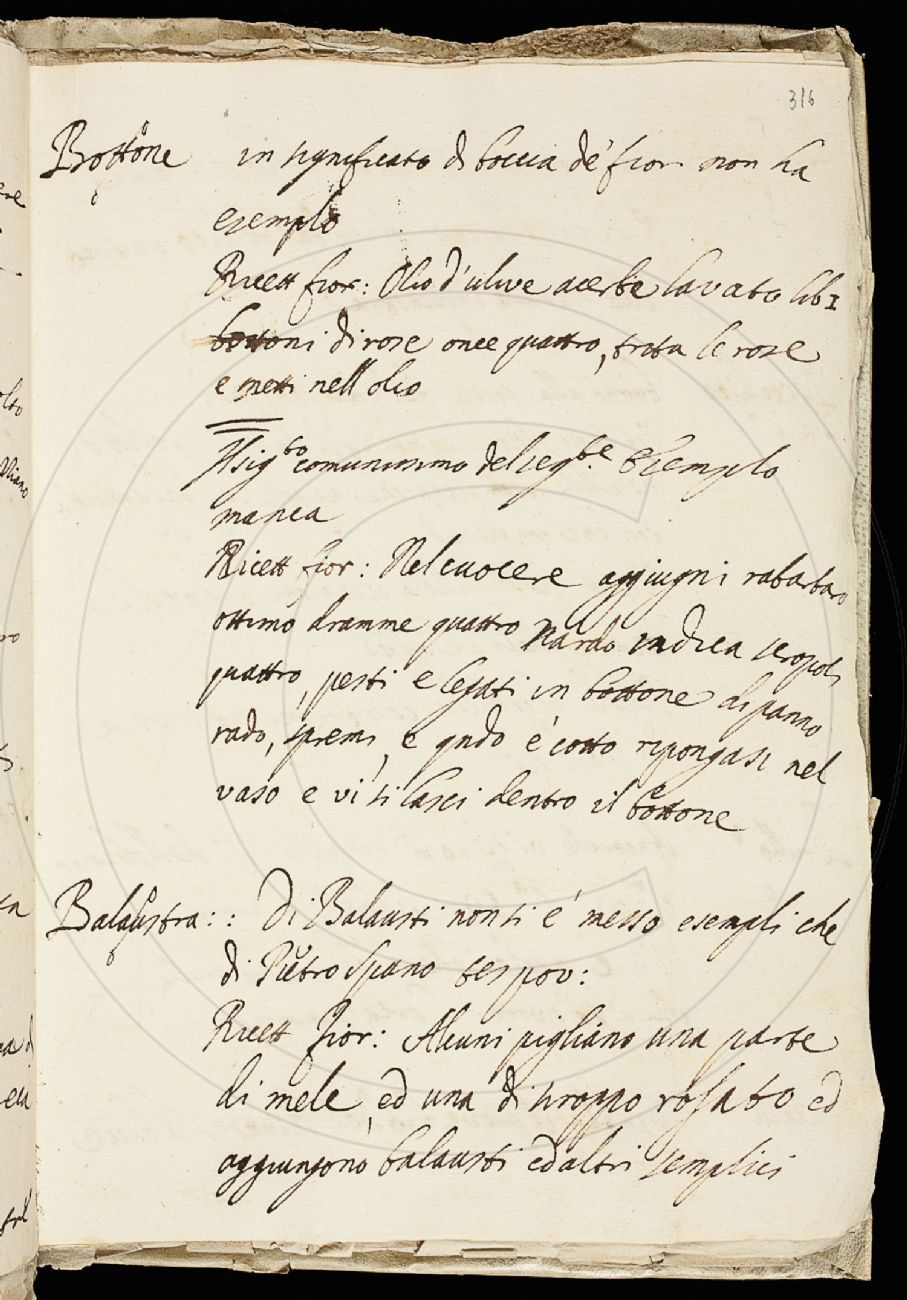 316
Bottone in significato di boccia de' fior non ha
esemplo
Ricett fior: Olio d'ulive acerbe lavato lib 1
bottoni di rose once quattro, trita le rose
e metti nell olio
Il sig.to comunissimo del seg.te Esemplo
manca
Ricett fior: Nel cuocere aggiugni rabarbaro
ottimo dramme quattro Nardo indica scropoli
quattro, pesti e legati in bottone di panno
rado, spremi, e qndo è cotto ripongasi nel
vaso e vi si lasci dentro il bottone
Balaustra:: Di Balausti non si è messo esempli che
di Pietro Spano tes pov:
Ricett Fior: Alcuni pigliano una parte
di mele, ed una di siroppo rosato ed
aggiungono balausti ed altri semplici